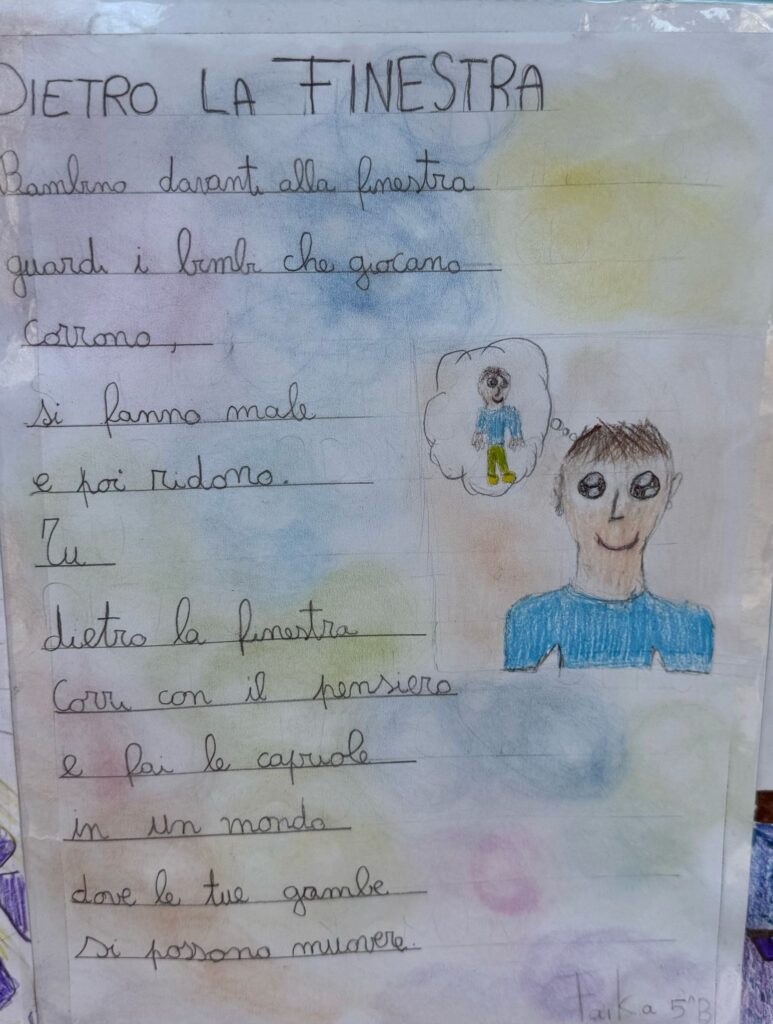 DIETRO LA FINESTRA
Bambino davanti alla finestra
guardi i bimbi che giocano
Corrono,
si fanno male
e poi ridono.
Tu
dietro la finestra
Corri con il pensiero
e fai le capriole
in un mondo
dove le tue gambe
si possono muovere.
5^B